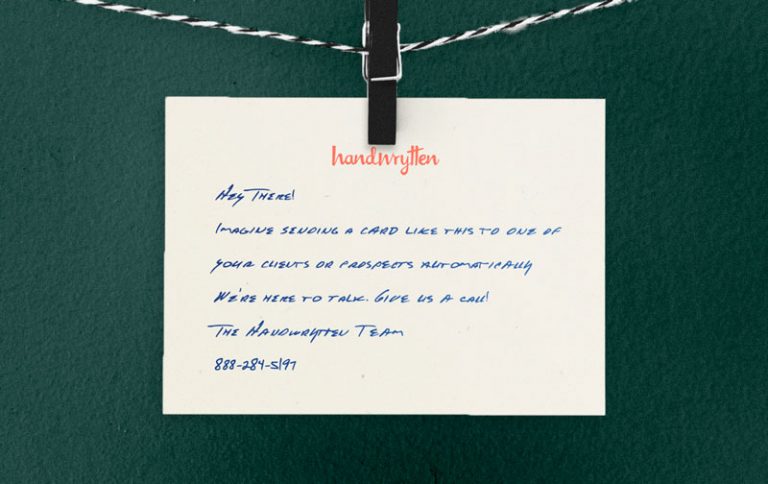 handwrytten
Hey There!
Imagine sending a card like this to one of
your clients or prospects automatically
We're here to talk. Give us a call!
The Handwrytten Team
888-284-5197